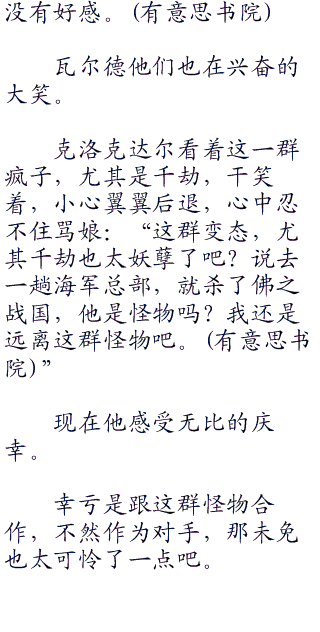 没有好感。(有意思书院)
瓦尔德他们也在兴奋的
大笑。
克洛克达尔看着这一群
疯子，尤其是千劫，干笑
着，小心翼翼后退，心中忍
不住骂娘：“这群变态，尤
其千劫也太妖孽了吧？说去
一趟海军总部，就杀了佛之
战国，他是怪物吗？我还是
远离这群怪物吧。(有意思书
院)”
现在他感受无比的庆
幸。
幸亏是跟这群怪物合
作，不然作为对手，那未免
也太可怜了一点吧。